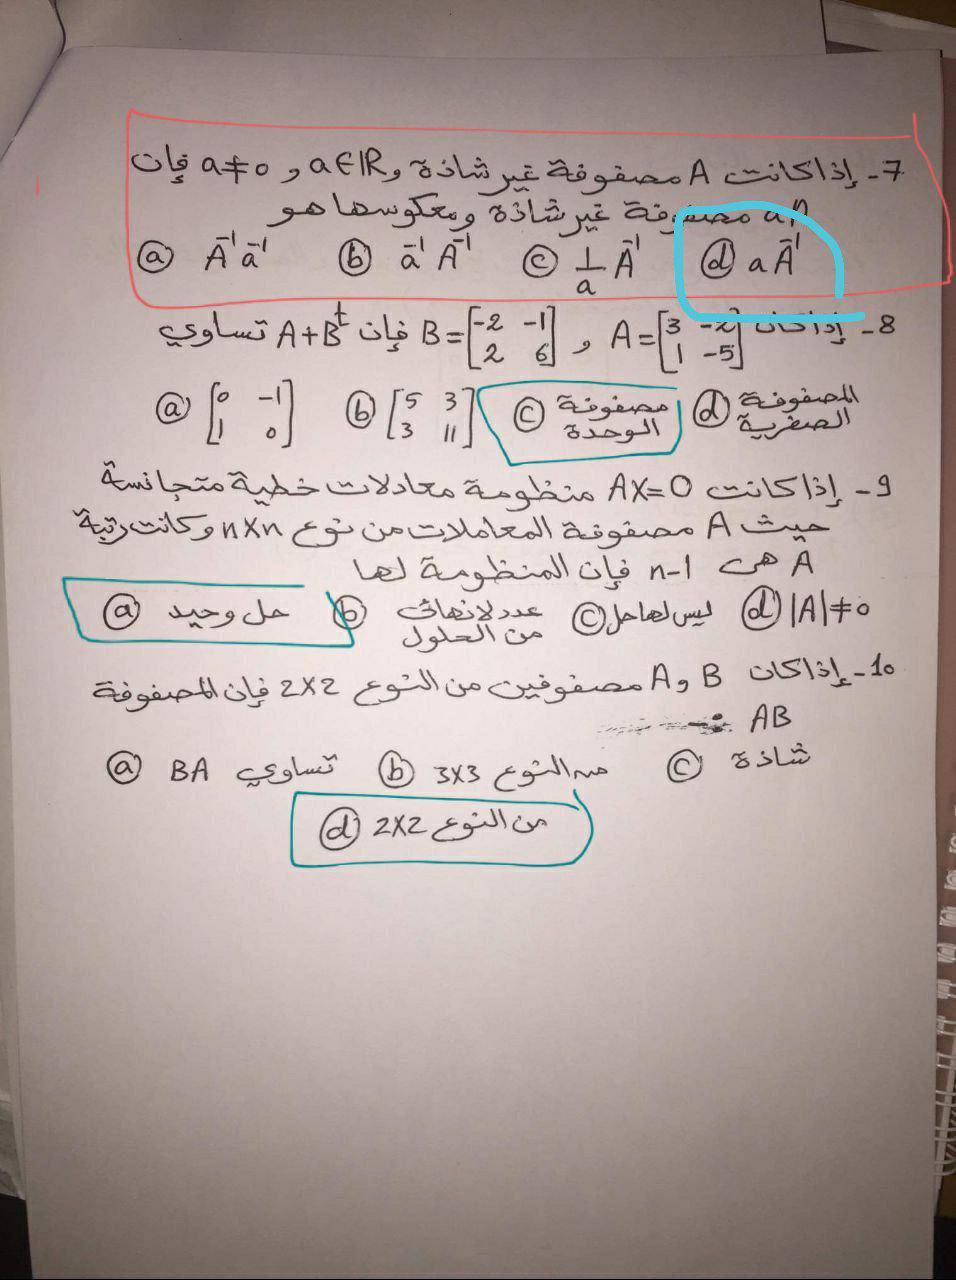 7- إذا كانت A مصفوفة غير شاذة و a∈IR و a≠0 فإن
aA مصفوفة غير شاذة ومعكوسها هو
ⓐ A⁻¹ a⁻¹ ⓑ a⁻¹ A⁻¹ ⓒ 1/a A⁻¹ ⓓ a A⁻¹
8- إذا كان A=[3 -2; 1 -5] و B=[-2 -1; 2 6] فإن A+Bᵗ تساوي
ⓐ [0 -1; 1 0] ⓑ [5 3; 3 11] ⓒ مصفوفة الوحدة ⓓ المصفوفة الصفرية
9- إذا كانت AX=0 منظومة معادلات خطية متجانسة
حيث A مصفوفة المعاملات من نوع n×n وكانت رتبة
A هي n-1 فإن المنظومة لها
ⓐ حل وحيد ⓑ عدد لانهائي من الحلول ⓒ ليس لها حل ⓓ |A|≠0
10- إذا كان A و B مصفوفين من النوع 2×2 فإن المصفوفة
AB
ⓐ تساوي BA ⓑ من النوع 3×3 ⓒ شاذة
ⓓ من النوع 2×2